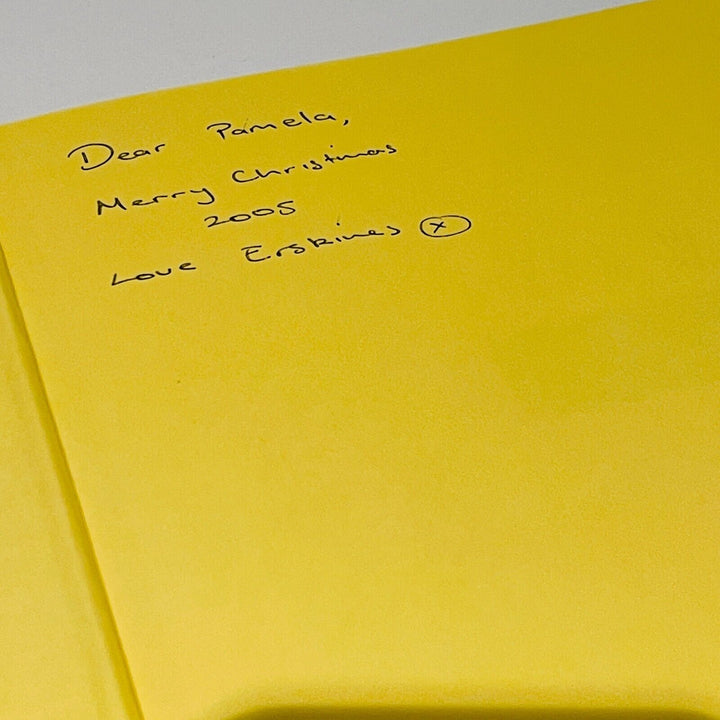 Dear Pamela,
Merry Christmas
2005
Love Erskines ⓧ